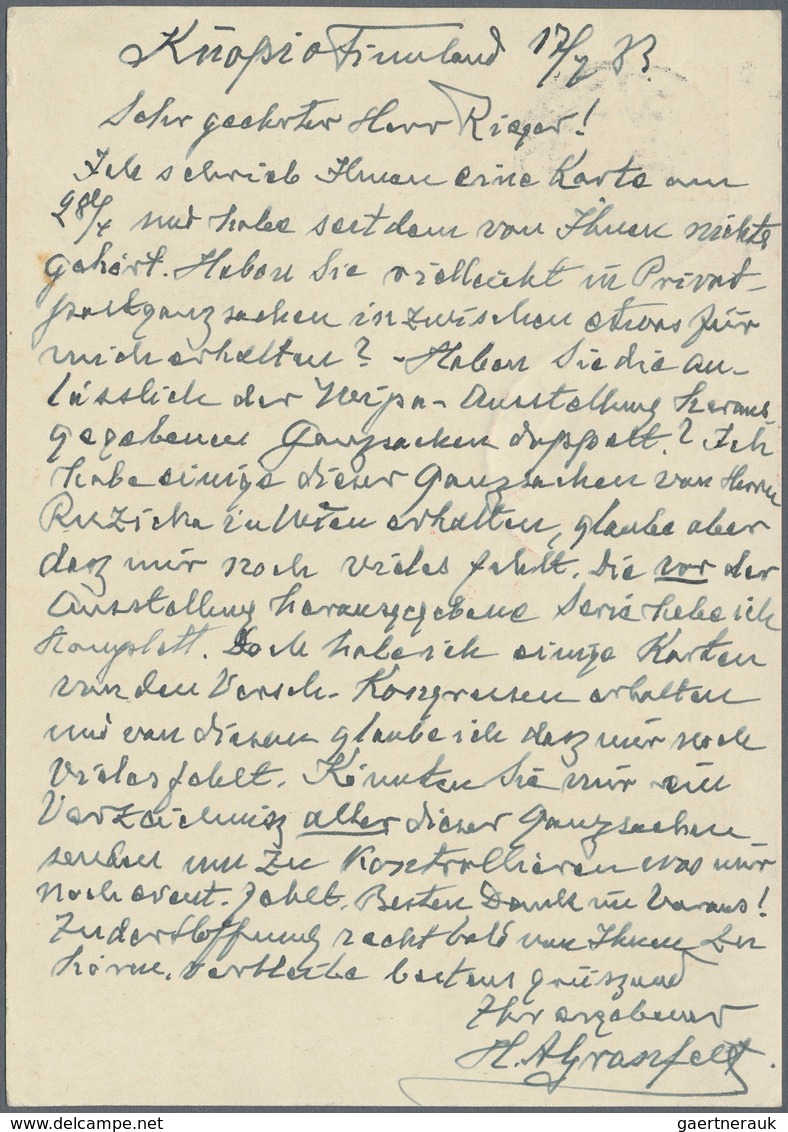 Kuopio Finnland 17/7 33.
Sehr geehrter Herr Rieger!
Ich schrieb Ihnen eine Karte am
28/4 und habe seitdem von Ihnen nichts
gehört. Haben Sie vielleicht in Privat-
postganzsachen inzwischen etwas für
mich erhalten? - Haben Sie die an-
lässlich der Wipa-Ausstellung heraus-
gegebenen Ganzsachen doppelt? Ich
habe einige dieser Ganzsachen von Herrn
Ruzicka in Wien erhalten, glaube aber
dasz mir noch vieles fehlt. Die vor der
Ausstellung herausgegebene Serie habe ich
komplett. Doch habe ich einige Karten
von den Versch. Kongressen erhalten
und von diesen glaube ich dasz mir noch
Vieles fehlt. Könnten Sie mir ein
Verzeichnisz aller dieser Ganzsachen
senden um zu Kontrollieren was mir
noch event. fehlt. Besten Dank im Voraus!
In der Hoffnung recht bald von Ihnen zu
hören, verbleibe bestens grüszend
Ihr ergebener
gaertnerauk